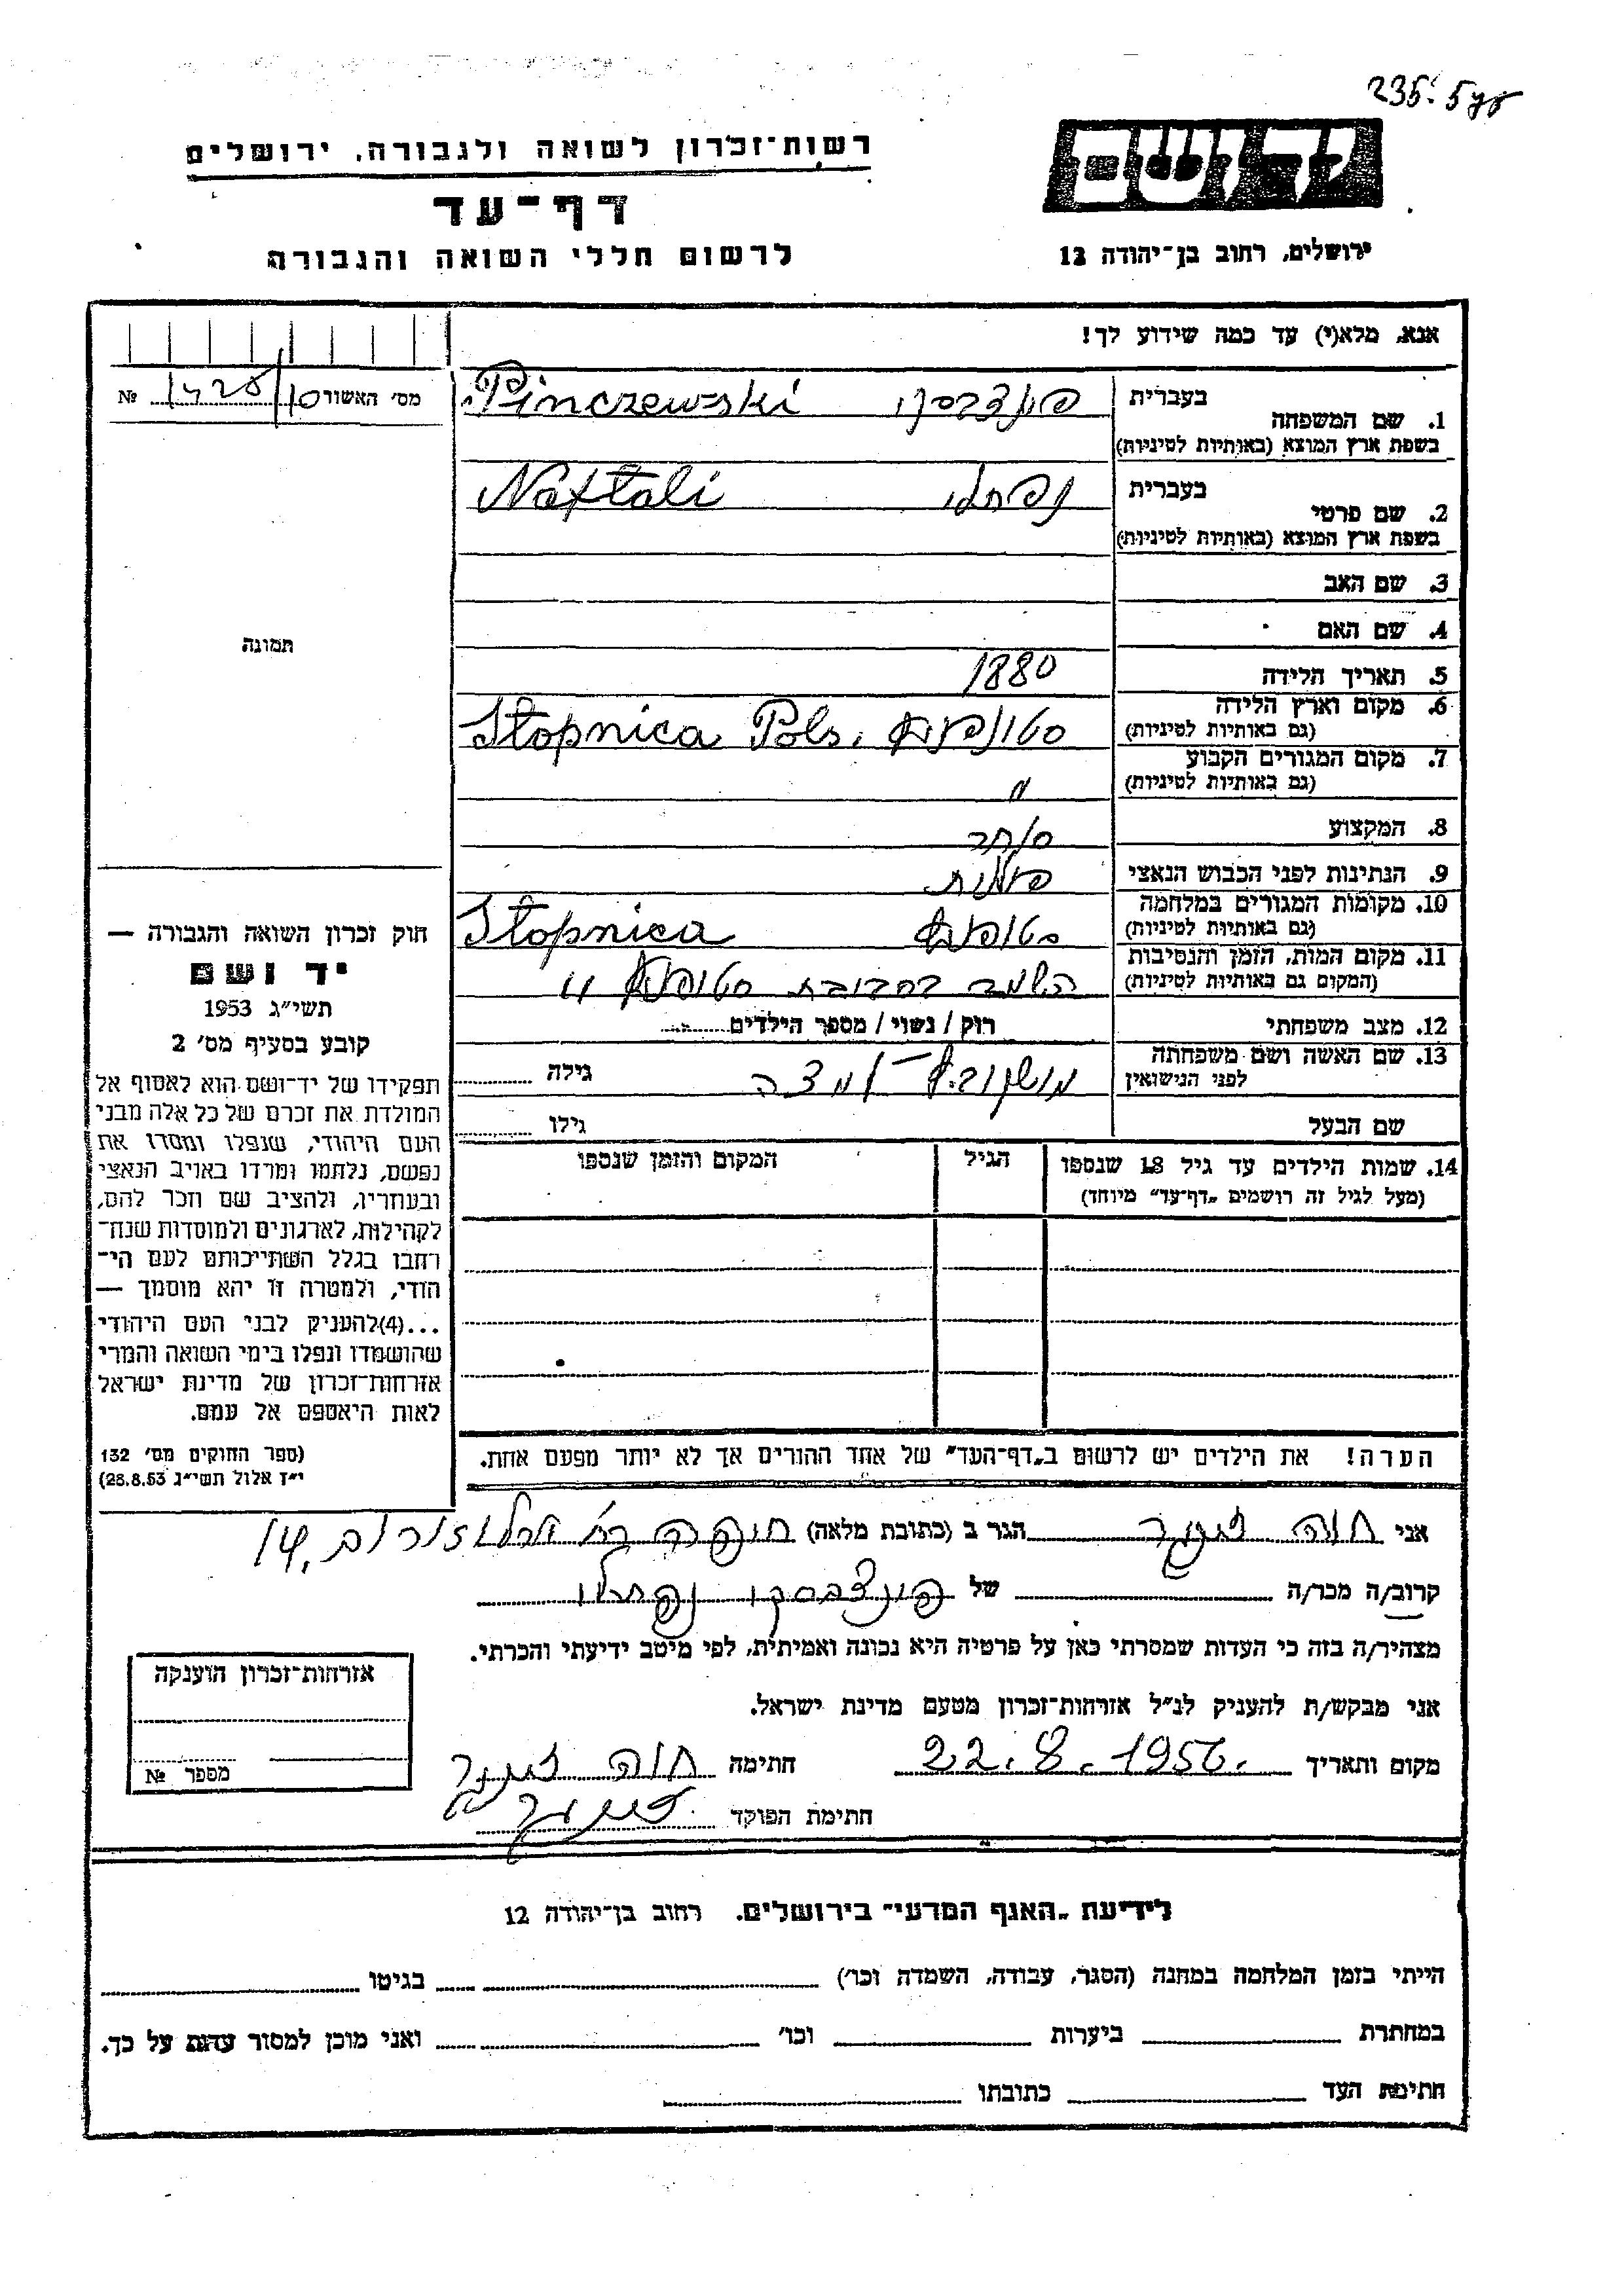 235
יד ושם
רשות־זכרון לשואה ולגבורה, ירושלים
דף־עד
לרשום חללי השואה והגבורה
ירושלים, רחוב בן־יהודה 12
אנא, מלא(י) עד כמה שידוע לך!
מס׳ האשור №
1. שם המשפחה בעברית Pinczewski
בשפת ארץ המוצא (באותיות לטיניות)
2. שם פרטי בעברית נפתלי Naftali
בשפת ארץ המוצא (באותיות לטיניות)
3. שם האב
4. שם האם
5. תאריך הלידה 1880
6. מקום וארץ הלידה Stopnica Pols.
(גם באותיות לטיניות)
7. מקום המגורים הקבוע "
(גם באותיות לטיניות)
8. המקצוע סוחר
9. הנתינות לפני הכבוש הנאצי פולנית
10. מקומות המגורים במלחמה Stopnica
(גם באותיות לטיניות)
11. מקום המות, הזמן והנסיבות
(המקום גם באותיות לטיניות)
12. מצב משפחתי רוק / נשוי / מספר הילדים
13. שם האשה ושם משפחתה גילה
לפני הנישואין
שם הבעל גילו
14. שמות הילדים עד גיל 18 שנספו הגיל המקום והזמן שנספו
(מעל לגיל זה רושמים „דף־עד” מיוחד)
הערה! את הילדים יש לרשום ב„דף־העד” של אחד ההורים אך לא יותר מפעם אחת.
תמונה
חוק זכרון השואה והגבורה —
יד ושם
תשי״ג 1953
קובע בסעיף מס׳ 2
תפקידו של יד־ושם הוא לאסוף אל
המולדת את זכרם של כל אלה מבני
העם היהודי, שנפלו ומסרו את
נפשם, נלחמו ומרדו באויב הנאצי
ובעוזריו, ולהציב שם וזכר להם,
לקהילות, לארגונים ולמוסדות שנח־
רבו בגלל השתייכותם לעם הי־
הודי, ולמטרה זו יהא מוסמך —
...(4)להעניק לבני העם היהודי
שהושמדו ונפלו בימי השואה והמרי
אזרחות־זכרון של מדינת ישראל
לאות היאספם אל עמם.
(ספר החוקים מס׳ 132
י״ז אלול תשי״ג 28.8.53)
אני חוה הגר ב (כתובת מלאה) חיפה רח׳ ארלוזורוב 14.
קרוב/ה מכר/ה של נפתלי
מצהיר/ה בזה כי העדות שמסרתי כאן על פרטיה היא נכונה ואמיתית, לפי מיטב ידיעתי והכרתי.
אני מבקש/ת להעניק לנ״ל אזרחות־זכרון מטעם מדינת ישראל.
מקום ותאריך 22.8.1956. חתימה חוה
חתימת הפוקד
אזרחות־זכרון הוענקה
מספר №
לידיעת „האגף המדעי” בירושלים. רחוב בן־יהודה 12
הייתי בזמן המלחמה במחנה (הסגר, עבודה, השמדה וכו׳) בגיטו
במחתרת ביערות וכו׳ ואני מוכן למסור עדות על כך.
חתימת העד כתובתו